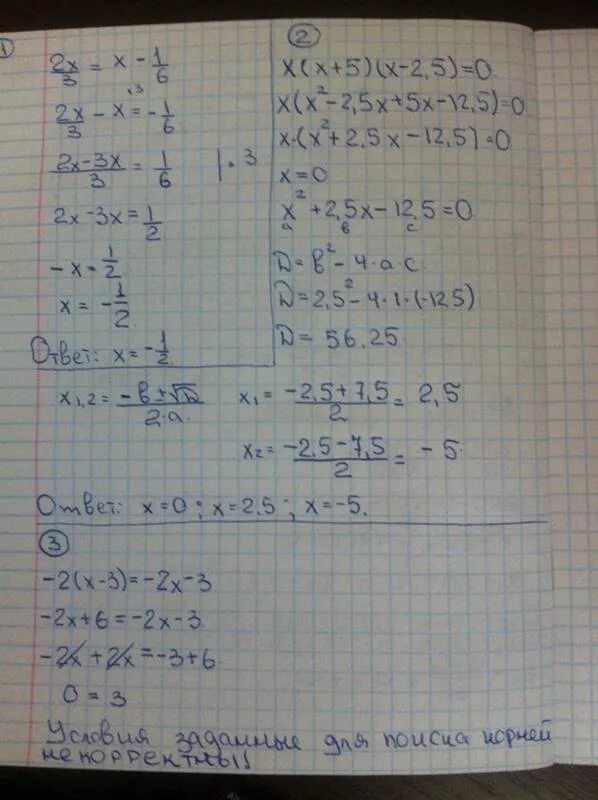 1
2x/3 = x - 1/6
·3
2x/3 - x = -1/6
(2x-3x)/3 = 1/6 |·3
2x-3x = 1/2
-x = 1/2
x = -1/2
Ответ: x = -1/2
2
x(x+5)(x-2,5)=0
x(x²-2,5x+5x-12,5)=0
x·(x²+2,5x-12,5)=0
x=0
x²+2,5x-12,5=0
а в с
D=в²-4·а·с
D=2,5²-4·1·(-12,5)
D=56,25
x₁,₂ = (-в±√D)/(2·а)
x₁ = (-2,5+7,5)/2 = 2,5
x₂ = (-2,5-7,5)/2 = -5
Ответ: x=0; x=2,5; x=-5.
3
-2(x-3)=-2x-3
-2x+6=-2x-3
-2x+2x=-3+6
0=3
Условия заданные для поиска корней
не корректны!